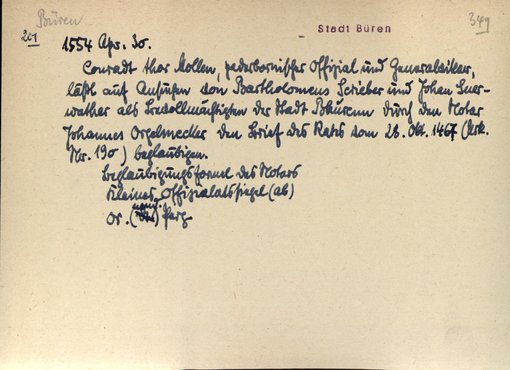 Büren
Stadt Büren
349
201
1554 Apr. 30.
Conradt thor Mollen, paderbornischer Offizial und Generalvikar,
läßt auf Ansuchen von Bartholomeus Scrieber und Johan
wather als Bevollmächtigten der Stadt Buurenn durch den Notar
Johannes Orgelmecker den Brief des Rats vom 28. Okt. 1467 (Urk.
Nr. 190) beglaubigen.
Beglaubigungsformel des Notars
Kleines Offizialatssiegel (ab)
Or. Perg.